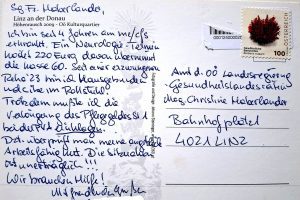 Sg Fr. Haberlander,
Linz an der Donau
Höhenrausch 2009 - OÖ Kulturquartier
Ich bin seit 4 Jahren an me/cfs
erkrankt. Ein Neurologie-Termin
kostet 220 Euro, davon übernimmt
die Kasse 60. Seit einer erzwungenen
Reha '23 bin ich Hausgebunden
und im Rollstuhl.
Trotzdem mußte ich die
des Pflegegeldes
Einklagen.
überprüft man meine
Arbeitsfähigkeit. Die Situation
ist unerträglich!!!
Wir brauchen Hilfe!
Mit freundlichen Grüßen
ÖSTERREICH
100
Amt d. OÖ Landesregierung
Gesundheitslandesrätin
Mag. Christine Haberlander
Bahnhofplatz 1
4021 LINZ